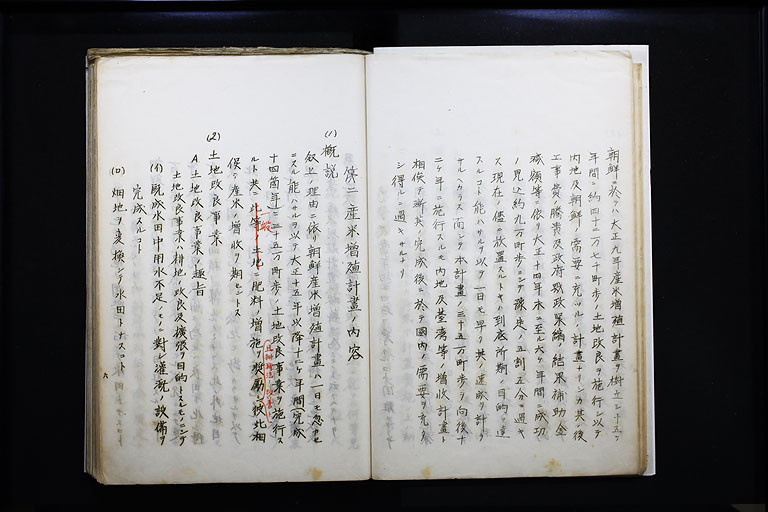 朝鮮ニ於テハ大正九年産米増殖計畫ヲ樹立シ十五ヶ
年間ニ約四十二万七千町歩ノ土地改良ヲ施行シ以テ
内地及朝鮮ノ需要ニ充ツルノ計畫ナリシカ其ノ後
工事費ノ騰貴及政府財政緊縮ノ結果補助金
減額等ニ依リ大正十四年末ニ至ル六ヶ年間ノ成功
ノ見込約九万町歩ニシテ豫定ノ五割五分ニ過キ
ス現在ノ儘ニ放置スルトキハ到底所期ノ目的ヲ達
スルコト能ハサルヲ以テ一日モ早ク其ノ達成ヲ計ラ
サルヘカラス而シテ本計畫ノ三十五万町歩ヲ向後十
二ヶ年ニ施行スルモ内地及臺湾等ノ増收計畫ト
相俟テ漸ク其ノ完成後ニ於テ國内ノ需要ヲ充タ
シ得ルニ過キサルナリ
第二 産米増殖計畫ノ内容
(1) 概説
叙上ノ理由ニ依リ朝鮮産米増殖計畫ハ一日モ忽カセ
ニスル能ハサルヲ以テ大正十五年以降十二ヶ年間(完成
十四箇年)ニ三十五万町歩ノ土地改良事業ヲ施行ス
ルト共ニ此等ノ土地ニ肥料ノ増施ヲ奨勵シ彼此相
一般
俟テ産米ノ増收ヲ期セントス
(2) 土地改良事業
A 土地改良事業ノ趣旨
土地改良事業ハ耕地ノ改良及擴張ヲ目的トスルモノニシテ
(イ) 既成水田中用水不足ノモノニ對シ灌漑ノ設備ヲ
完成スルコト
(ロ) 畑地ヲ変換シテ水田トナスコト
九